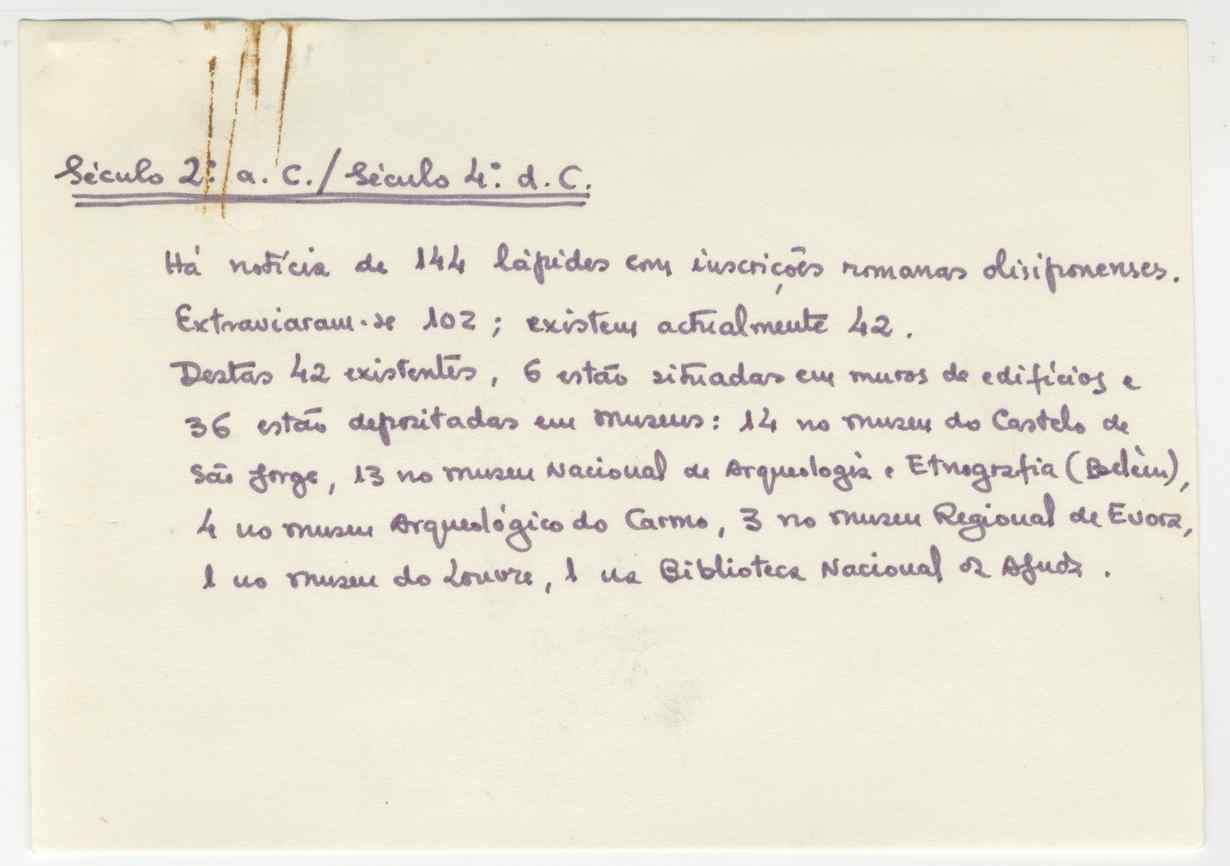 Século 2º a. C. / Século 4º d. C.
Há notícia de 144 lápides com inscrições romanas olisiponenses.
Extraviaram-se 102 ; existem actualmente 42 .
Destas 42 existentes , 6 estão situadas em muros de edifícios e
36 estão depositadas em museus : 14 no museu do Castelo de
São Jorge , 13 no museu Nacional de Arqueologia e Etnografia (Belém),
4 no museu Arqueológico do Carmo , 3 no museu Regional de Évora,
1 no museu do Louvre , 1 na Biblioteca Nacional da Ajuda .